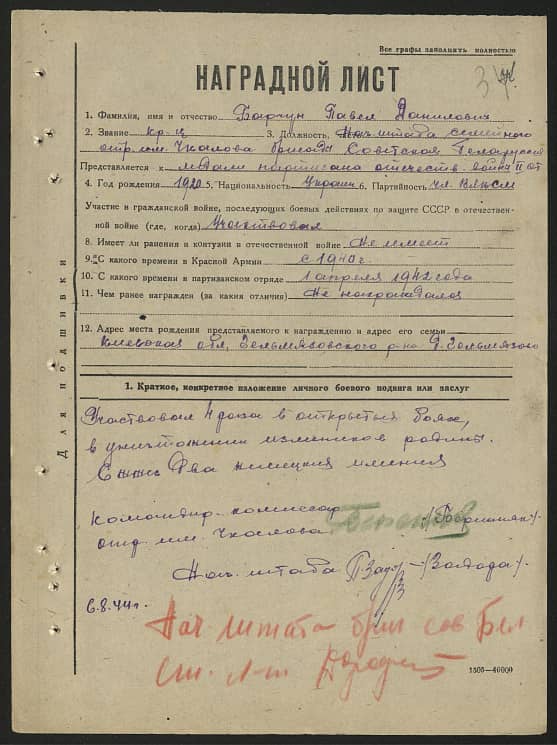 Все графы заполнять полностью
НАГРАДНОЙ ЛИСТ
1. Фамилия, имя и отчество Баргун Павел Данилович
2. Звание кр-ц 3. Должность Нач. штаба семейного
отр. им. Чкалова бригада Советская Белоруссия
Представляется к медали партизана отечеств. война II ст
4. Год рождения 1920 5. Национальность Украин 6. Партийность чл. ВЛКСМ
Участие в гражданской войне, последующих боевых действиях по защите СССР в отечествен-
ной войне (где, когда) Участвовал
8. Имеет ли ранения и контузии в отечественной войне Не имеет
9. С какого времени в Красной Армии с 1940 г.
10. С какого времени в партизанском отряде 1 апреля 1942 года
11. Чем ранее награжден (за какия отличия) Не награждался
12. Адрес места рождения представляемого к награждению и адрес его семьи
Киевская обл, Гельмязовского р-на д. Гельмязово
Для подшивки
1. Краткое, конкретное изложение личного боевого подвига или заслуг
Участвовал 4 раза в открытых боях,
в уничтожении изменников родины.
Сжег два немецких имения
Командир комиссар
отр. им. Чкалова
Нач. штаба
6.8.44 г.
Нач штаба бриг Сов Бел
ст. л-т
1505—40000